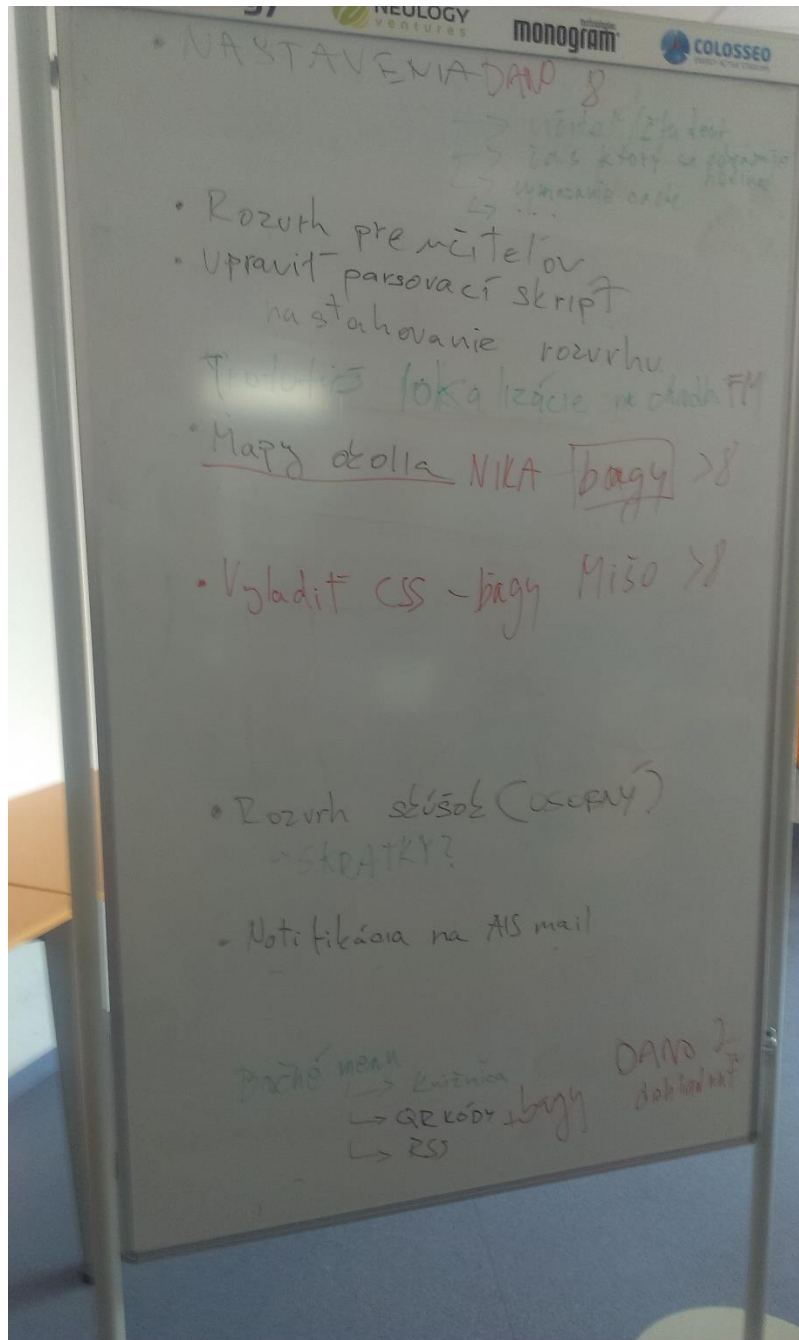 NEULOGY
ventures
monogram
technologies
COLOSSEO
• NASTAVENIA DANO 8
čas ktorý sa
vymazanie cache
...
• Rozvrh pre učiteľov
• Upraviť parsovací skript
na sťahovanie rozvrhu
lokalizácie na FM
• Mapy okolia NIKA bagy >8
• Vyladiť CSS - bagy Mišo >8
• Rozvrh skúšok (OSOBNÝ)
SKRATKY?
- Notifikácia na AIS mail
Bočné menu
→ Knižnica
→ QR KÓDY + bagy
→ RSS
DANO 2
dohľadať